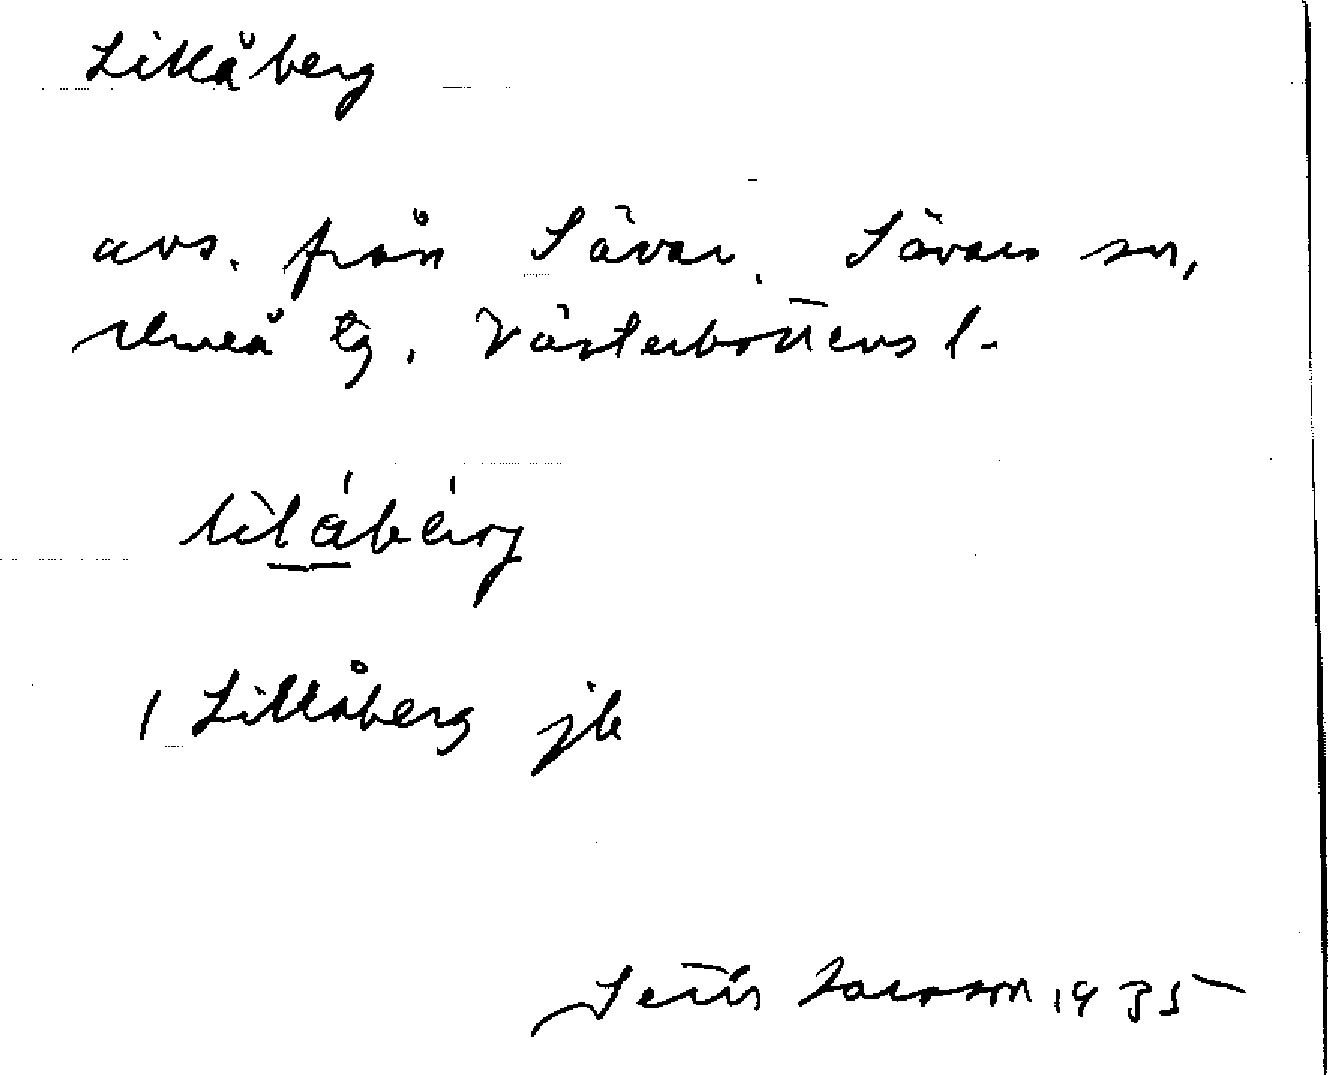 Lillåberg
avs. från Sävar. Sävars sn,
Umeå tg, Västerbottens l.
lìlábérg
1 Lillåberg jb
Larsson 1935